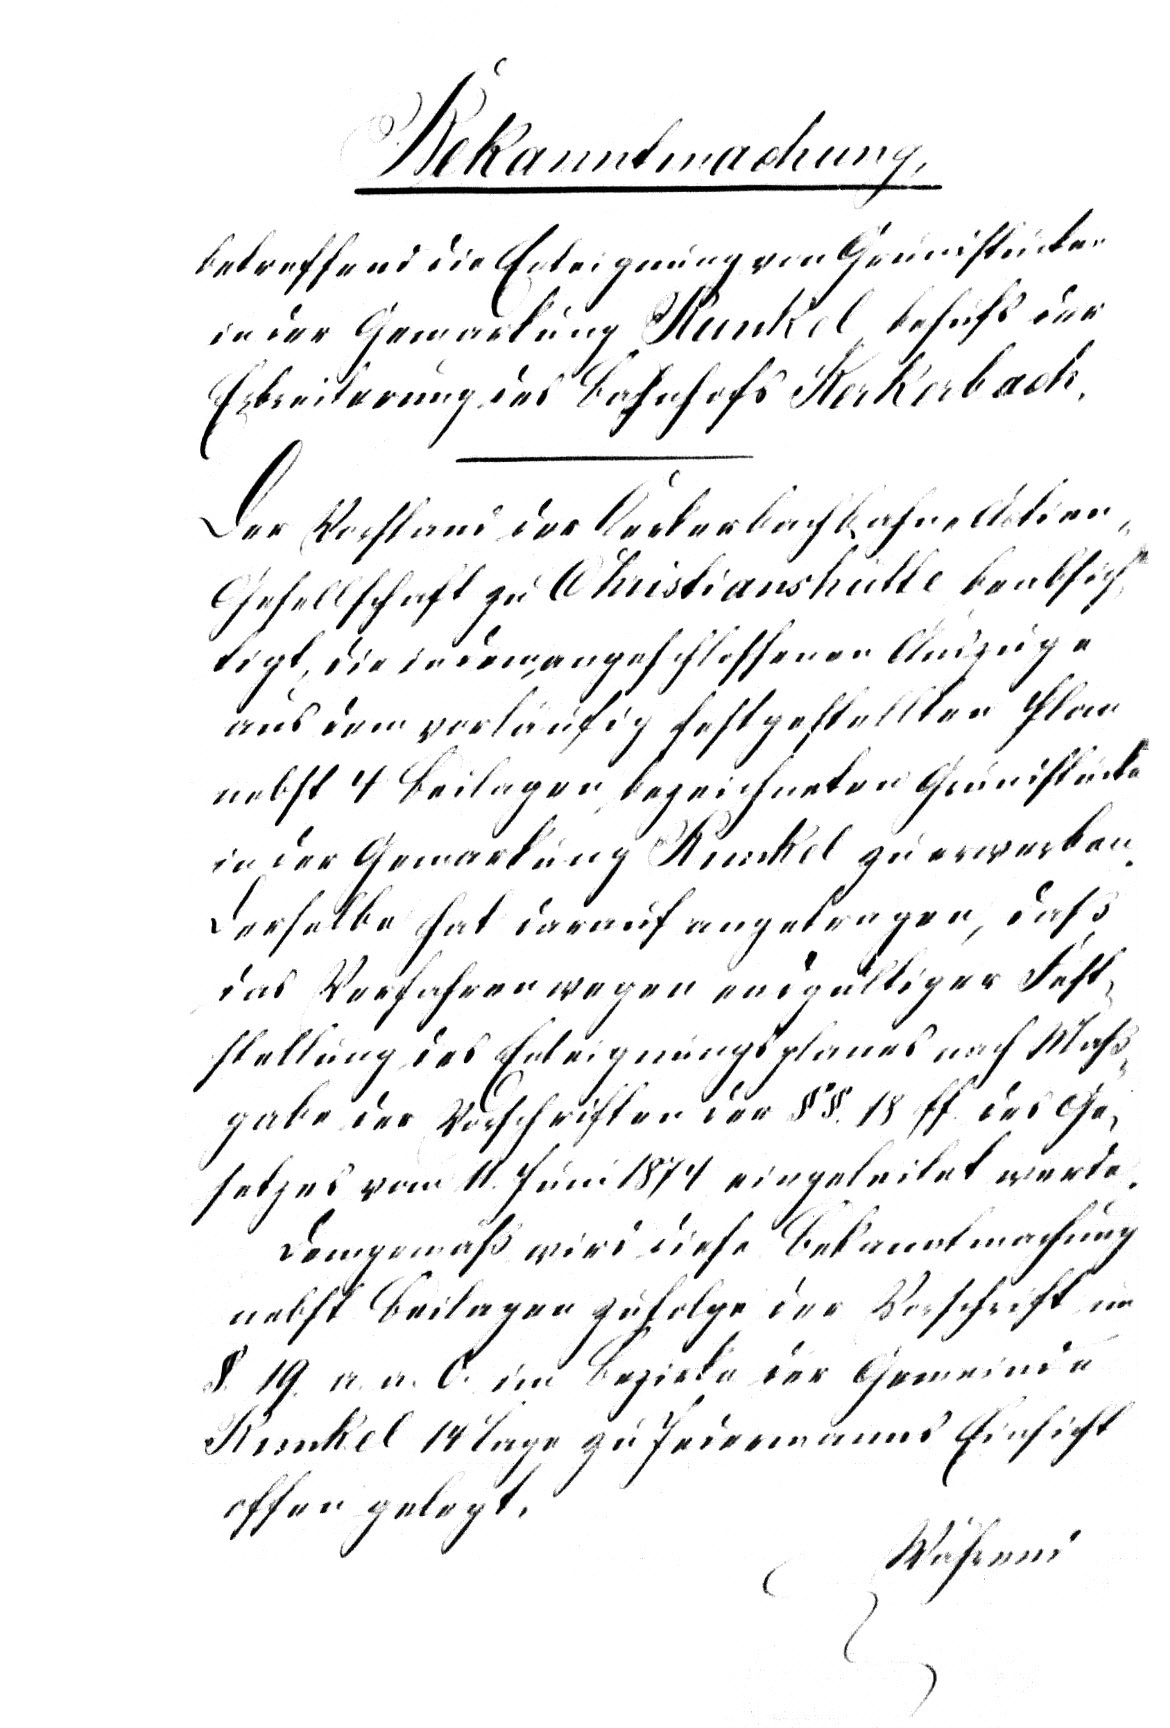 Bekanntmachung,
betreffend die Enteignung von Grundstücken
in der Gemarkung Runkel behufs der
Erbreiterung des Bahnhofs Kerkerbach.
Der Vorstand der Kerkerbachbahn-Actien-
Gesellschaft zu Christianshütte beabsich-
tigt, die in dem angeschlossenen Auszuge
aus dem vorläufig festgestellten Plan
nebst 4 Beilagen bezeichneten Grundstücke
in der Gemarkung Runkel zu erwerben.
Derselbe hat darauf angetragen, daß
das Verfahren wegen endgültiger Fest-
stellung des Enteignungsplanes nach Maß-
gabe der Vorschriften der §§. 18 ff. des Ge-
setzes vom 11. Juni 1874 eingeleitet werde.
Demgemäß wird diese Bekanntmachung
nebst Beilagen zufolge der Vorschrift im
§. 19. a. a. O. im Bezirke der Gemeinde
Runkel 14 Tage zu Jedermanns Einsicht
offen gelegt.
Während